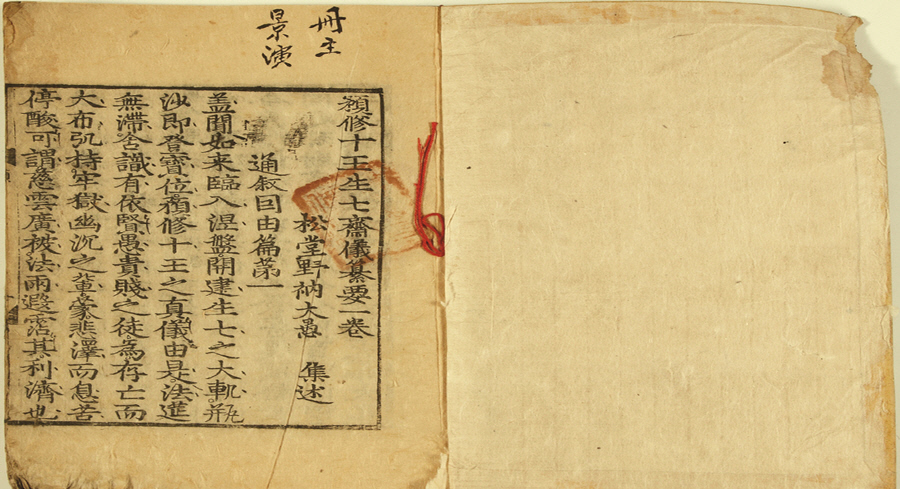 冊主
景演
預修十王生七齋儀纂要一卷
松堂野衲大愚 集述
通叙囙由篇苐一
盖聞如来臨入涅盤開建生七之大軌瓶
沙即登寶位預修十王之真儀由是法進
無滯含識有依賢愚貴賤之徒為存亡而
大布弘持牢獄幽沉之輩蒙悲澤而息苦
停酸可謂慈雲廣被法雨遐霑其利濟也